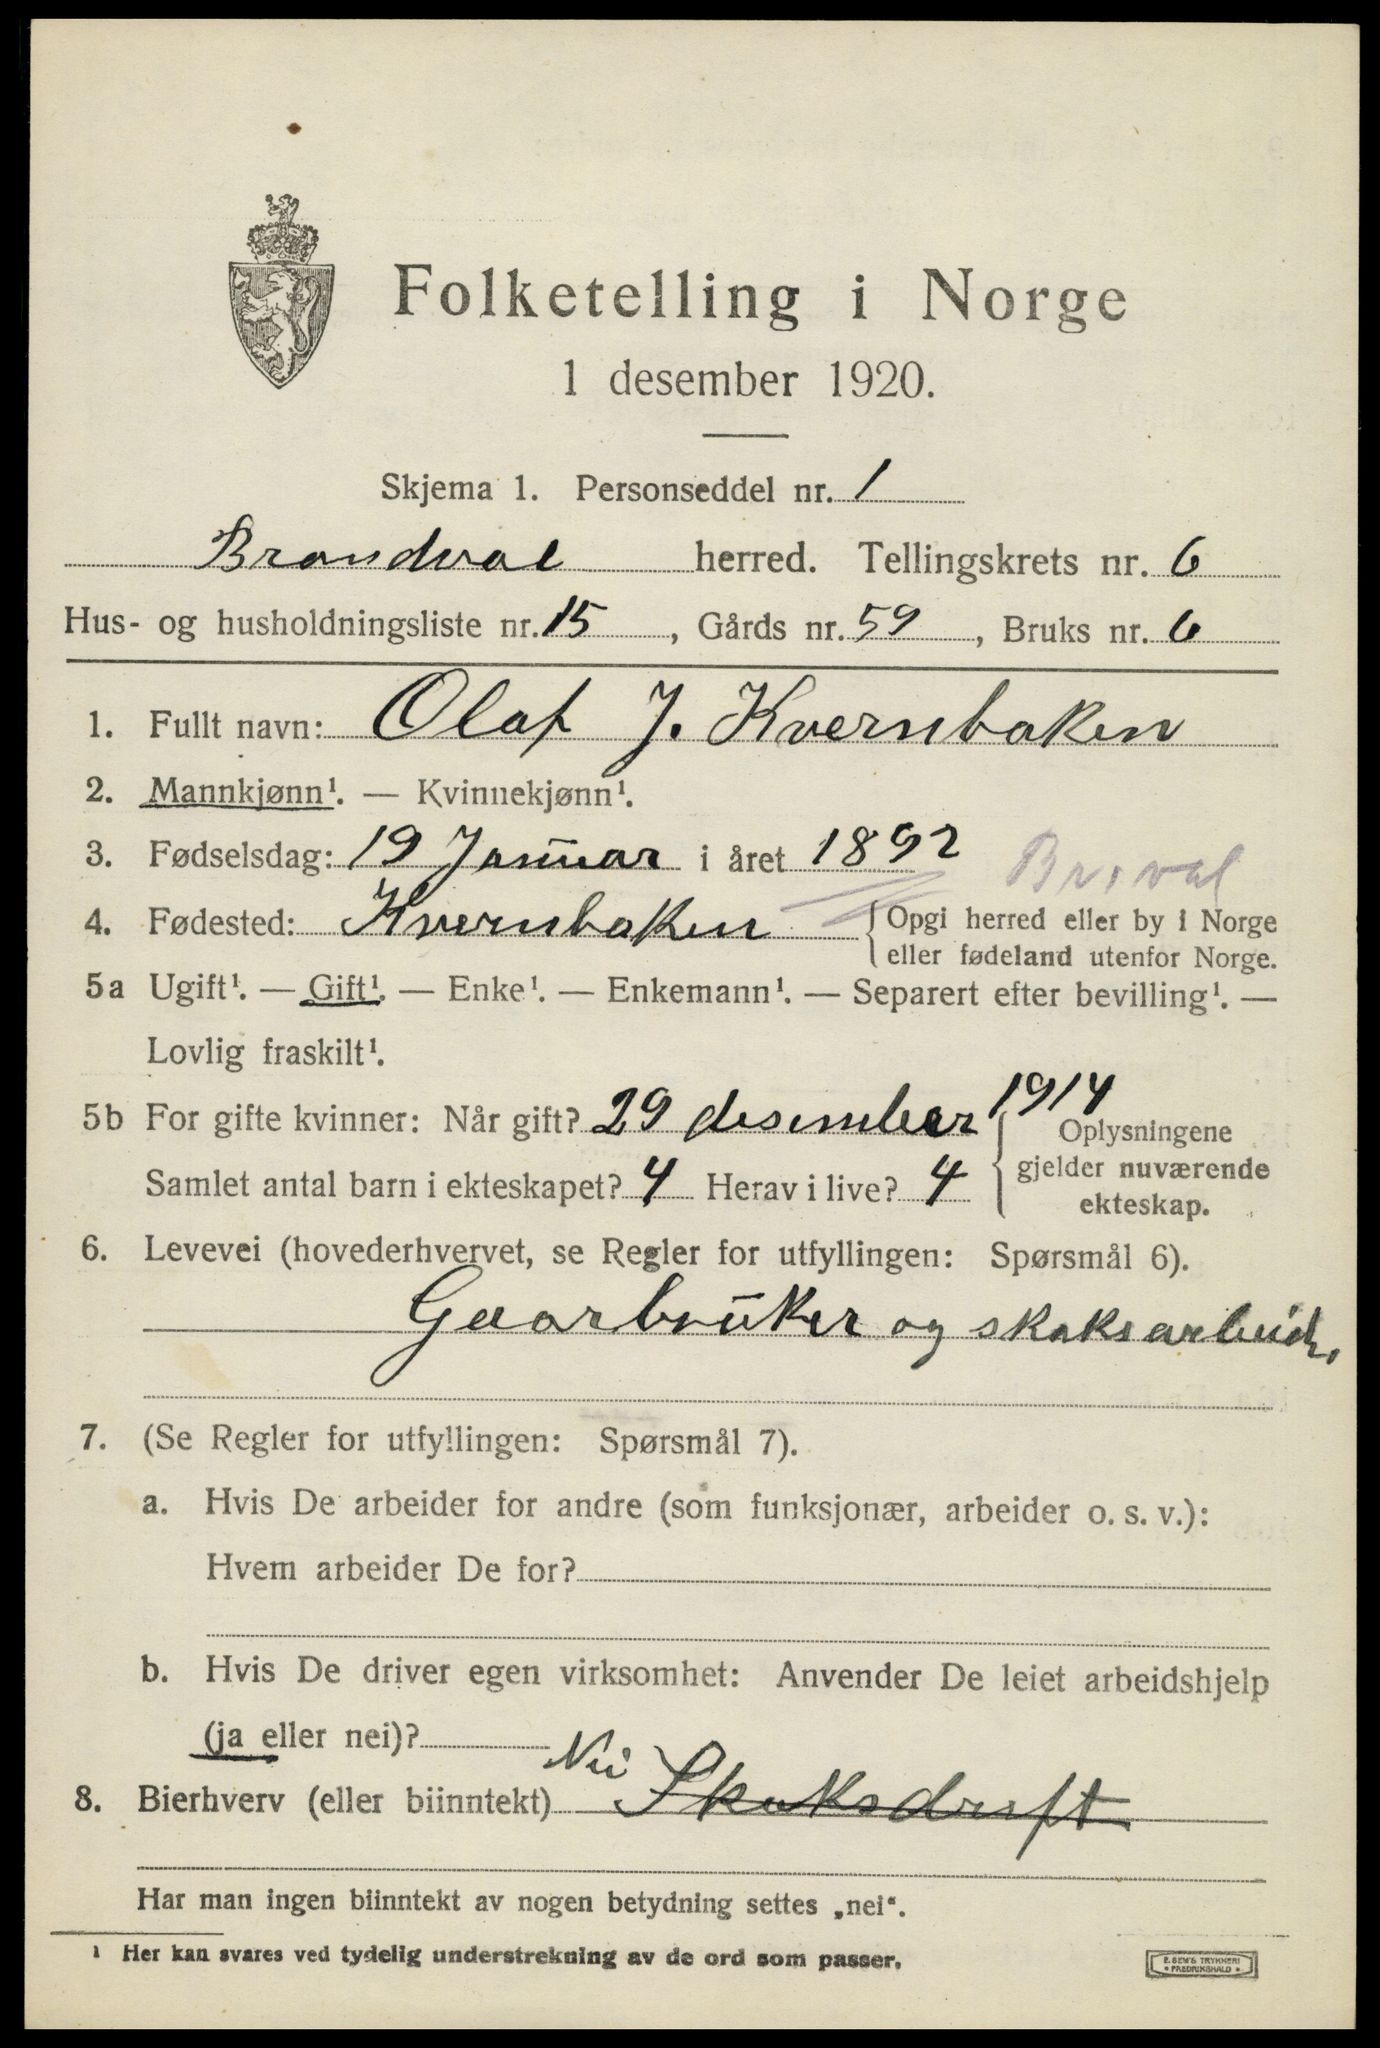 Folketelling i Norge
1 desember 1920.
Skjema 1. Personseddel nr. 1
Brandval herred. Tellingskrets nr. 6
Hus- og husholdningsliste nr. 15, Gårds nr. 59, Bruks nr. 6
1. Fullt navn: Olaf J. Kvernbaken
2. Mannkjønn¹. — Kvinnekjønn¹.
3. Fødselsdag: 19 Januar i året 1892
Br.val
4. Fødested: Kvernbaken {Opgi herred eller by i Norge
eller fødeland utenfor Norge.
5a Ugift¹. — Gift¹. — Enke¹. — Enkemann¹. — Separert efter bevilling¹. —
Lovlig fraskilt¹.
5b For gifte kvinner: Når gift? 29 desember 1914
Oplysningene
gjelder nuværende
ekteskap.
Samlet antal barn i ekteskapet? 4 Herav i live? 4
6. Levevei (hovederhvervet, se Regler for utfyllingen: Spørsmål 6).
Gaarbruker og skoksarbeid.
7. (Se Regler for utfyllingen: Spørsmål 7).
a. Hvis De arbeider for andre (som funksjonær, arbeider o. s. v.):
Hvem arbeider De for?
b. Hvis De driver egen virksomhet: Anvender De leiet arbeidshjelp
(ja eller nei)?
8. Bierhverv (eller biinntekt) Nei Skoksdrift
Har man ingen biinntekt av nogen betydning settes „nei“.
¹ Her kan svares ved tydelig understrekning av de ord som passer.
E. SEM'S TRYKKERI
• FREDRIKSHALD •